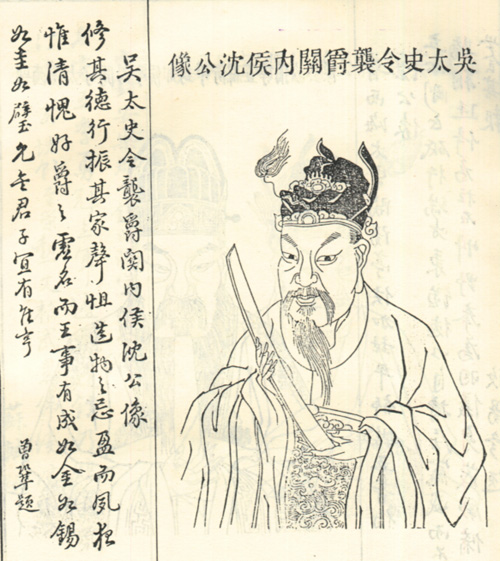 吳太史令襲爵關內侯沈公像
吳太史令襲爵関内侯沈公像
修其德行振其家聲怛造物之忌盈而夙夜
惟清愧好爵之虚名而王事有成如金如錫
如圭如璧允矣君子宜有
曾鞏題